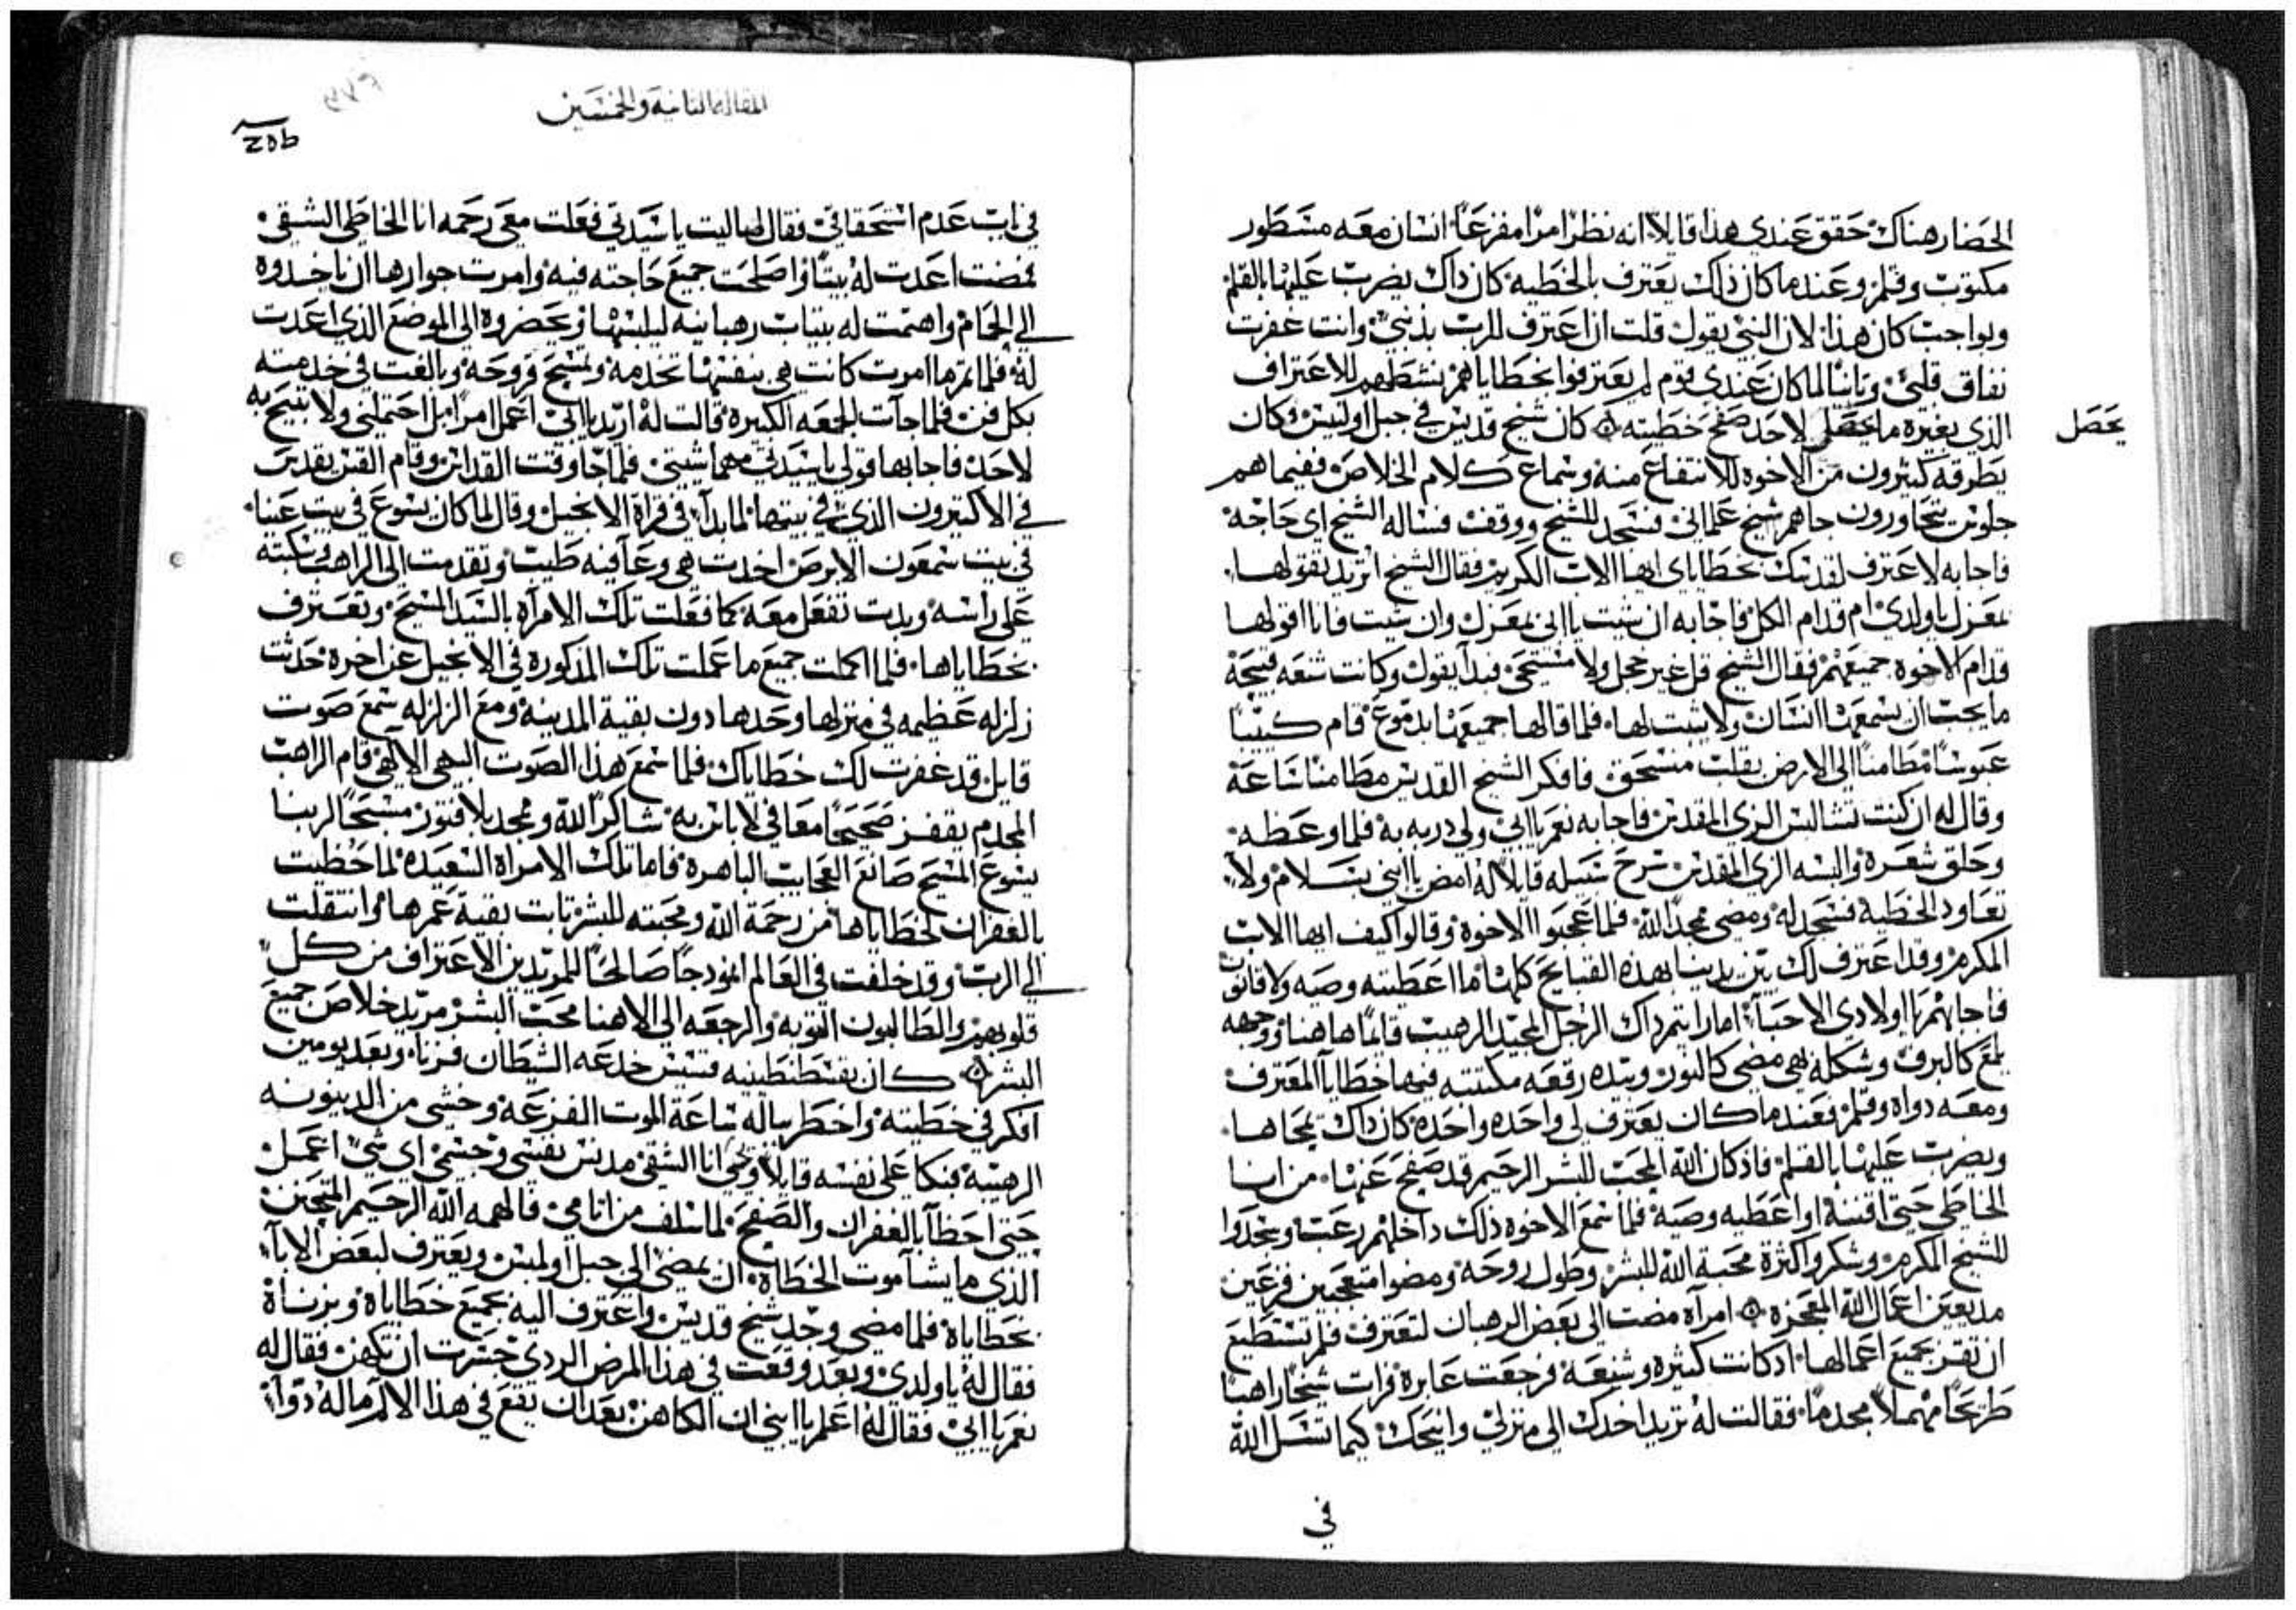 الحضار هناك حقق عندى هذا قايلًا انه نظر امرًا مفزعًا انسان معه مسطور
مكتوب وقلم وعندما كان ذلك يعترف بالخطيه كان ذاك يضرب عليها بالقلم
وبواجب كان هذا لان النبى يقول قلت ان اعترف للرب بذنبى وانت غفرت
نفاق قلبى وثانيًا لما كان عندى قوم لم يعترفوا بخطاياهم نشطهم للاعتراف
الذى بغيره ما يحصل لاحد صفح خطيته كان شيخ قديس فى جبل اولمبس وكان
يحصل
يطرقه كثيرون من الاخوه للانتفاع منه وسماع كلام الخلاص ففيما هم
جلوس يتحاورون جاهم شيخ علمانى فسجد للشيخ ووقف فساله الشيخ اى حاجه
فاجابه لاعترف لقدسك بخطاياى ايها الاب الكريم فقال الشيخ اتريد تقولها
بمعزل ياولدى ام قدام الكل فاجابه ان شيت ياابى بمعزل وان شيت فانا اقولها
قدام الاخوه جميعهم فقال الشيخ قل غير خجل ولا مستحى فبدا يقول وكانت شنعه قبيحة
ما يجب ان يسمعها انسان ولا يثبت لها فلما قالها جميعها بدموع قام كئيبًا
عبوسًا مطامنًا الى الارض بقلب منسحق فافكر الشيخ القديس مطامنًا ساعة
وقال له ان كنت تشا البس الزى المقدس فاجابه نعم ياابى ولى دربه به فلما وعظه
وحلق شعره والبسه الزى المقدس سرح سبيله قايلًا له امض ياابنى بسلام ولا
تعاود الخطية فسجد له ومضى ممجدًا لله فلما عجبوا الاخوة وقالوا كيف ايها الاب
المكرم وقد اعترف لك بين يدينا بهذه القبايح كلها ما اعطيته وصيه ولا قانون
فاجابهم يااولادى الاحبا اما رايتم ذاك الرجل المجيد الرهيب قايمًا هاهنا ووجهه
يلمع كالبرق وشكله بهى مضى كالنور وبيده رقعه مكتتبه فيها خطايا المعترف
ومعه دواة وقلم فعندما كان يعترف لى واحده واحده كان ذاك يمحاها
ويضرب عليها بالقلم فاذ كان الله المحب للبشر الرحيم قد صفح عنها من انا
الخاطى حتى اقننه او اعطيه وصية فلما سمع الاخوه ذلك داخلهم رعب وسجدوا
للشيخ المكرم وشكروا كثرة محبة الله للبشر وطول روحه ومضوا متعجبين فزعين
مذيعين اعمال الله المعجزه امرآه مضت الى بعض الرهبان لتعترف فلم تستطيع
ان تقر بجميع اعمالها اذ كانت كثيره وشنيعه فرجعت عابرة فرات شيخًا راهبًا
طريحًا مهملًا مجدمًا فقالت له تريد اخدك الى منزلى وانيحك كيما تسل الله
فى
المقاله الثانيه والخمسين
٣٧٦
في باب عدم استحقاقى فقال لها ليت ياسيدتى فعلت معى رحمه انا الخاطى الشقى
فمضت اعدت له بيتًا واصلحت جميع حاجته فيه وامرت جوارها ان ياخدوه
الى الحمام واهتمت له بثياب رهبانيه ليلبسها ويحضروه الى الموضع الذى اعدت
له فلما تم ما امرت كانت هى بنفسها تخدمه وتمسح قروحه وبالغت فى خدمته
بكل فن فلما جآت الجمعه الكبيره قالت له اريد ياابى اعمل امرًا بل احتملنى ولا تبيح به
لاحد فاجابها قولى ياسيدتى مهما شيتى فلما جا وقت القداس وقام القس يقدس
فى الاكتيرون الذى فى بيتها لما بدآ فى قراة الانجيل وقال لما كان يسوع فى بيت عنيا
فى بيت سمعون الابرص اخدت هى وعآ فيه طيب وتقدمت الى الراهب وسكبته
على راسه وبدت تفعل معه كما فعلت تلك الامرآه بالسيد المسيح وتعترف
بخطاياها فلما اكملت جميع ما عملت تلك المذكوره فى الانجيل عن اخره حدثت
زلزله عظيمه فى منزلها وحدها دون بقية المدينه ومع الزلزله سمع صوت
قايل قد غفرت لك خطاياك فلما سمع هذا الصوت البهى الالهى قام الراهب
المجدم يقفز صحيحًا معافى لا باس به شاكرًا لله وممجد بلا فتور مسبحًا لربنا
يسوع المسيح صانع العجايب الباهره فاما تلك الامراه السعيده لما حظيت
بالغفران لخطاياها من رحمة الله ومحبته للبشر تابت بقية عمرها وانتقلت
الى الرب وقد خلفت فى العالم انمودجًا صالحًا للمريدين الاعتراف من كل
قلوبهم والطالبون التوبه والرجعه الى الاهنا محب البشر مريد خلاص جميع
البشر كان بقسطنطينيه قسيس خدعه الشيطان فزنا وبعد يومين
افكر فى خطيته واخطر بباله ساعة الموت الفزعه وخشى من الدينونه
الرهيبه فبكا على نفسه قايلًا ويحى انا الشقى مدنس نفسى وجسمى اى شى اعمل
حتى احظآ بالغفران والصفح لما سلف من اثامى فالهمه الله الرحيم المتحنن
الذى ما يشا موت الخطاه ان يمضى الى جبل اولمبس ويعترف لبعض الابآ
بخطاياه فلما مضى وجد شيخ قديس واعترف اليه بجميع خطاياه وبزناه
فقال له ياولدى وبعد وقعت فى هذا المرض الردى جسرت ان تكهن فقال له
نعم ياابى فقال له اعلم ياابنى ان الكاهن بعد ان يقع فى هذا الالم ماله دوآ